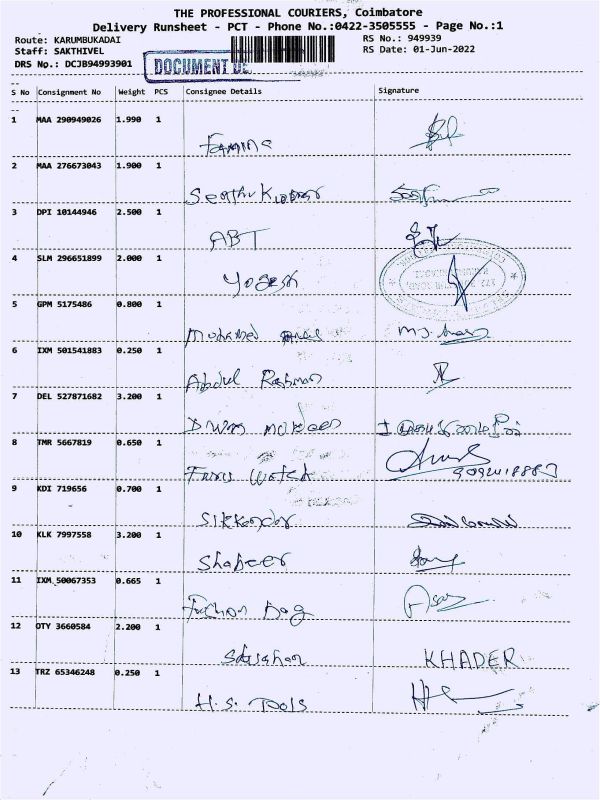 THE PROFESSIONAL COURIERS, Coimbatore
Delivery Runsheet - PCT - Phone No.:0422-3505555 - Page No.:1
Route: KARUMBUKADAI RS No.: 949939
Staff: SAKTHIVEL RS Date: 01-Jun-2022
DRS No.: DCJB94993901 DOCUMENT
S No Consignment No Weight PCS Consignee Details Signature
1 MAA 290949026 1.990 1
2 MAA 276673043 1.900 1
3 DPI 10144946 2.500 1
ABT
4 SLM 296651899 2.000 1
Yogesh
5 GPM 5175486 0.800 1
Mohamed
6 IXM 501541883 0.250 1
Abdul Rahman
7 DEL 527871682 3.200 1
8 TMR 5667819 0.650 1
9 KDI 719656 0.700 1
Sikkandar
10 KLK 7997558 3.200 1
Shabeer
11 IXM 50067353 0.665 1
Bag
12 OTY 3660584 2.200 1
KHADER
13 TRZ 65346248 0.250 1
H.S. Tools